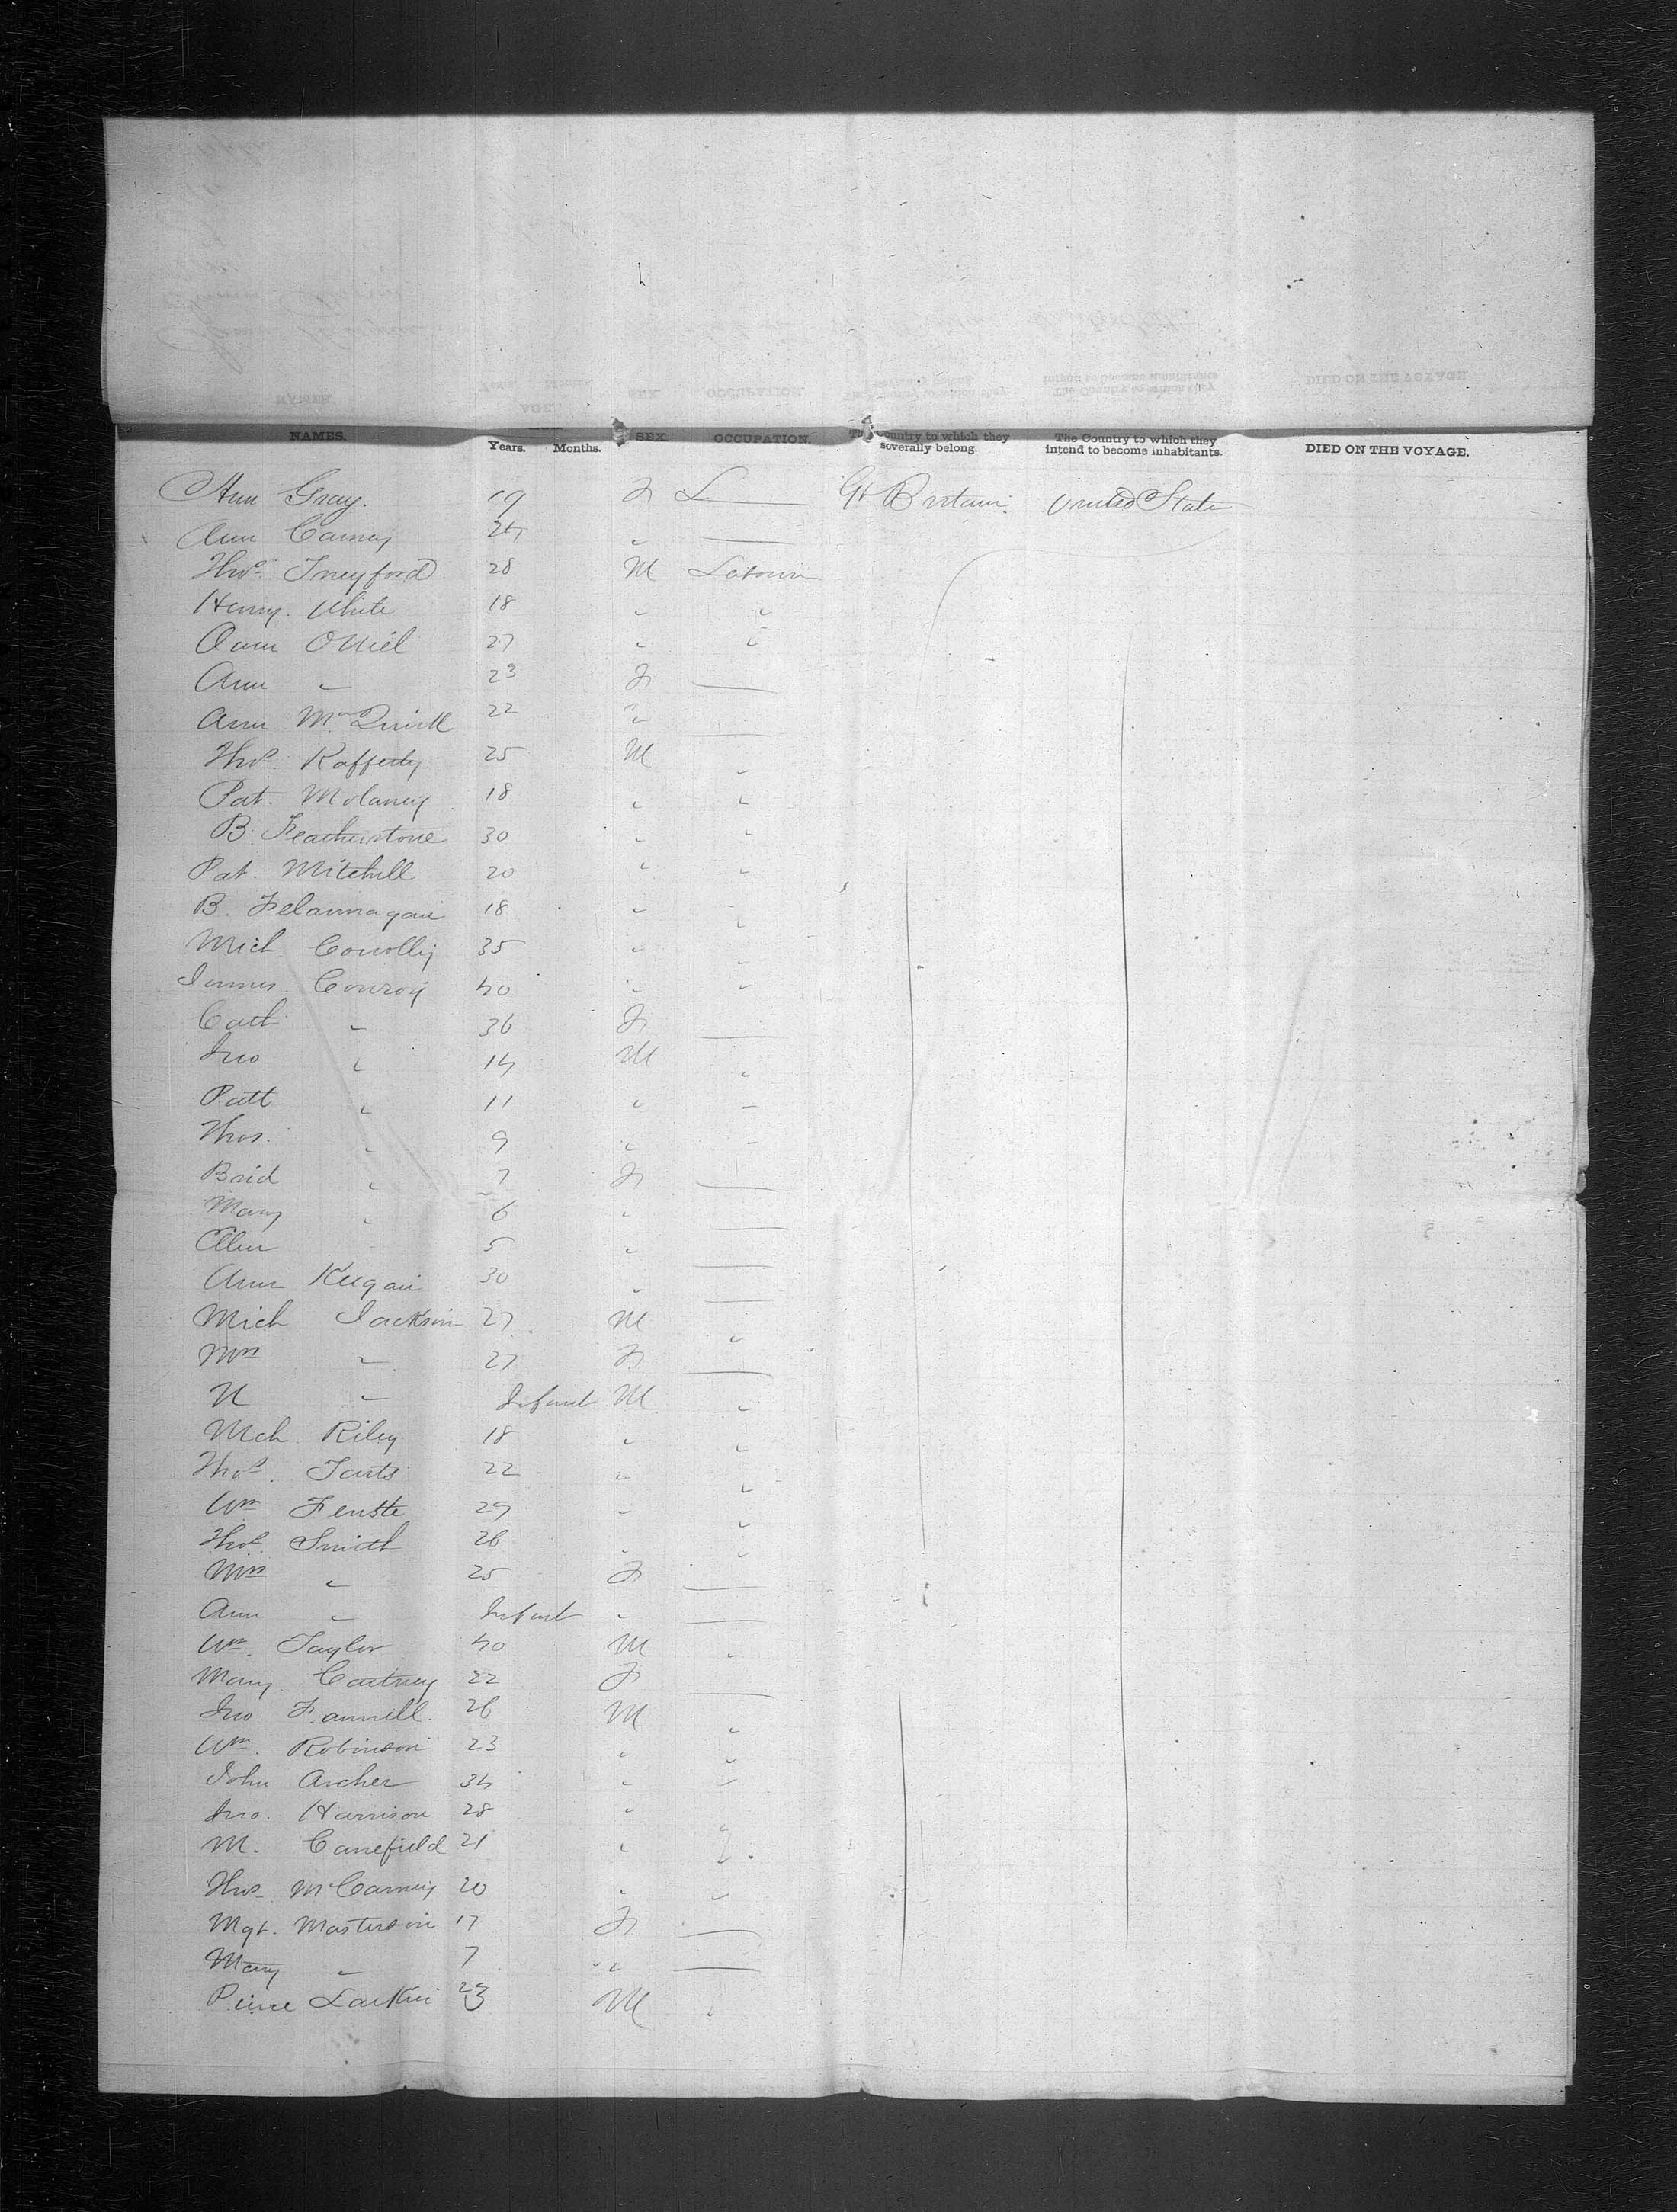 NAMES. Years. Months. SEX. OCCUPATION. The Country to which they severally belong. The Country to which they intend to become inhabitants. DIED ON THE VOYAGE.
Ann Gray. 19 F Gt Britain. United State
Ann Carney 24 "
Thos. 28 M Labourer
Henry. White 18 " "
ONiel 27 " "
Ann " 23 F
Ann 22 "
Thos. Rafferty 25 M "
Pat. Molaney 18 " "
B. Featherstone 30 " "
Pat. Mitchell 20 " "
B. Felannagan 18 " "
Mich. Conolly 35 " "
James Conroy 40 " "
Cath " 36 F
Jno " 14 M "
Patt " 11 " "
Thos. " 9 " "
Brid " 7 F
Mary " 6 "
Ellen 5 "
Ann Keegan 30 "
Mich Jackson 27 M "
Mrs " 27 F
N " Infant M "
Mch Riley 18 " "
Thos. 22 " "
Wm 29 " "
Thos. Smith 26 " "
Mrs " 25 F
Ann " Infant "
Wm. Taylor 40 M "
Mary Cartney 22 F
Jno Fannell. 26 M "
Wm. Robinson 23 " "
John Archer 34 " "
Jno. Harrison 28 " "
M. Canefield 21 " "
Thos McCarney 20 " "
Mgt. Masterson 17 F
Mary " 7 "
Larkin M "